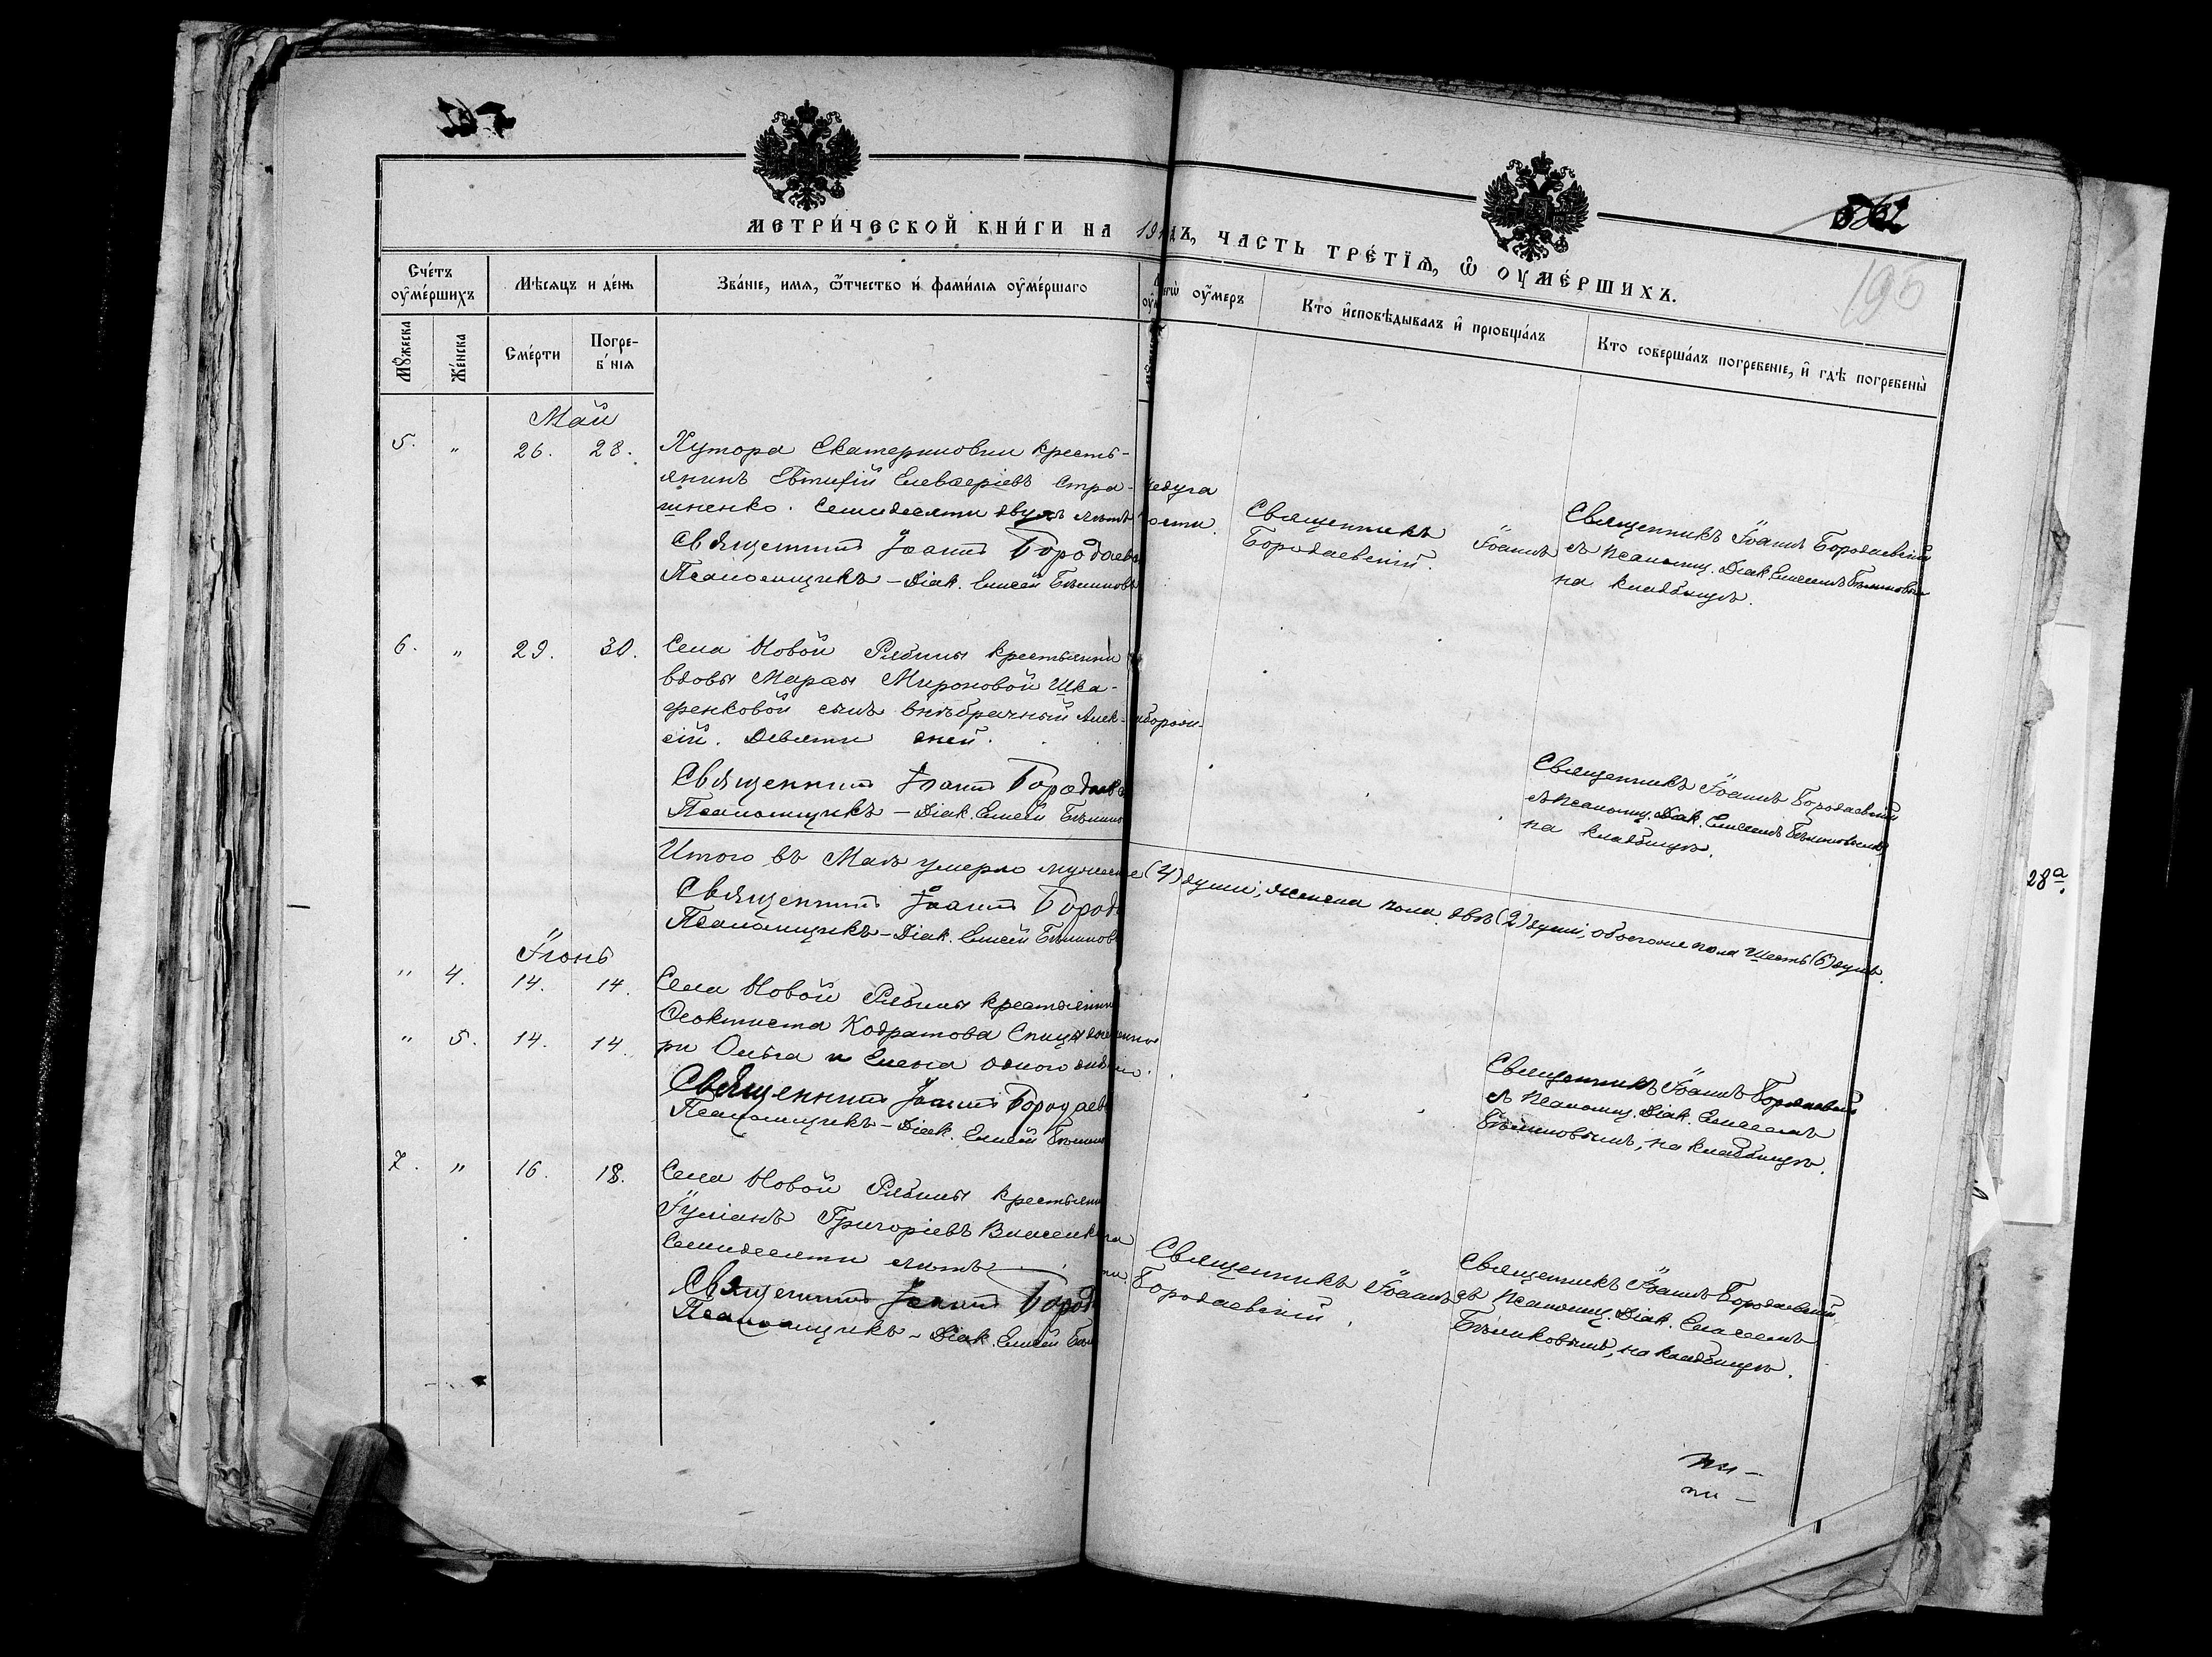 562
196
МЕТРИ́ЧЕСКОЙ КНИ́ГИ НА 19
ДЪ, ЧАСТЬ ТРЕ́ТІѦ, Ѿ ОУМЕ́РШИХЪ.
Сче́тъ оумершихъ
Мужеска
Же́нска
Мѣсяцъ и де́нь
Сме́рти
Погре-
б нія
Зва́ніе, имя, ѿтчество и фами́лія оуме́ршаго
оумеръ
Кто исповѣдывалъ и пріобща́лъ
Кто соверша́лъ погребеніе, и гдѣ погребены
Май
5. " 26. 28.
Хутора Екатериновки кресть-
янинъ Евтихій Елевѳеріевъ Стра-
шненко. Семидесяти двухъ лѣтъ
Священникъ Іоаннъ Бородаев
Псаломщикъ – Діак. Елисей
Священникъ Іоаннъ
Бородаевскій.
Священникъ Іоаннъ Бородаевскій
съ псаломщ. Діак. Елисеемъ
на кладбищѣ.
6. " 29. 30.
Села Новой Рябины крестьянки
вдовы Марѳы Мироновой Шка-
ренковой сынъ внѣбрачный Алек-
сій. Девяти дней.
Священникъ Іоаннъ Бородаев
Псаломщикъ – Діак. Елисей
Священникъ Іоаннъ Бородаевскій
съ псаломщ. Діак. Елисеемъ
на кладбищѣ.
Итого въ Маѣ умерло мужеска (4) души, женска пола двѣ (2) души, обоего пола шесть (6) душъ.
Священникъ Іоаннъ Бород
Псаломщикъ – Діак. Елисей
Іюнь
" 4. 14. 14.
" 5. 14. 14.
Села Новой Рябины крестьянина
Ѳеоктиста Кодратова доче-
ри Ольга и Елена одного дня
Священникъ Іоаннъ Бородаев
Псаломщикъ – Діак. Елисей
Священникъ Іоаннъ Бородаевскій
съ псаломщ. Діак. Елисеемъ
на кладбищѣ.
7. " 16. 18.
Села Новой Рябины крестьянин
Іуліанъ Григоріевъ
Семидесяти лѣтъ
Священникъ Іоаннъ Бород
Псаломщикъ – Діак. Елисей
Священникъ Іоаннъ
Бородаевскій.
Священникъ Іоаннъ Бородаевскій
съ псаломщ. Діак. Елисеемъ
на кладбищѣ.
28а.